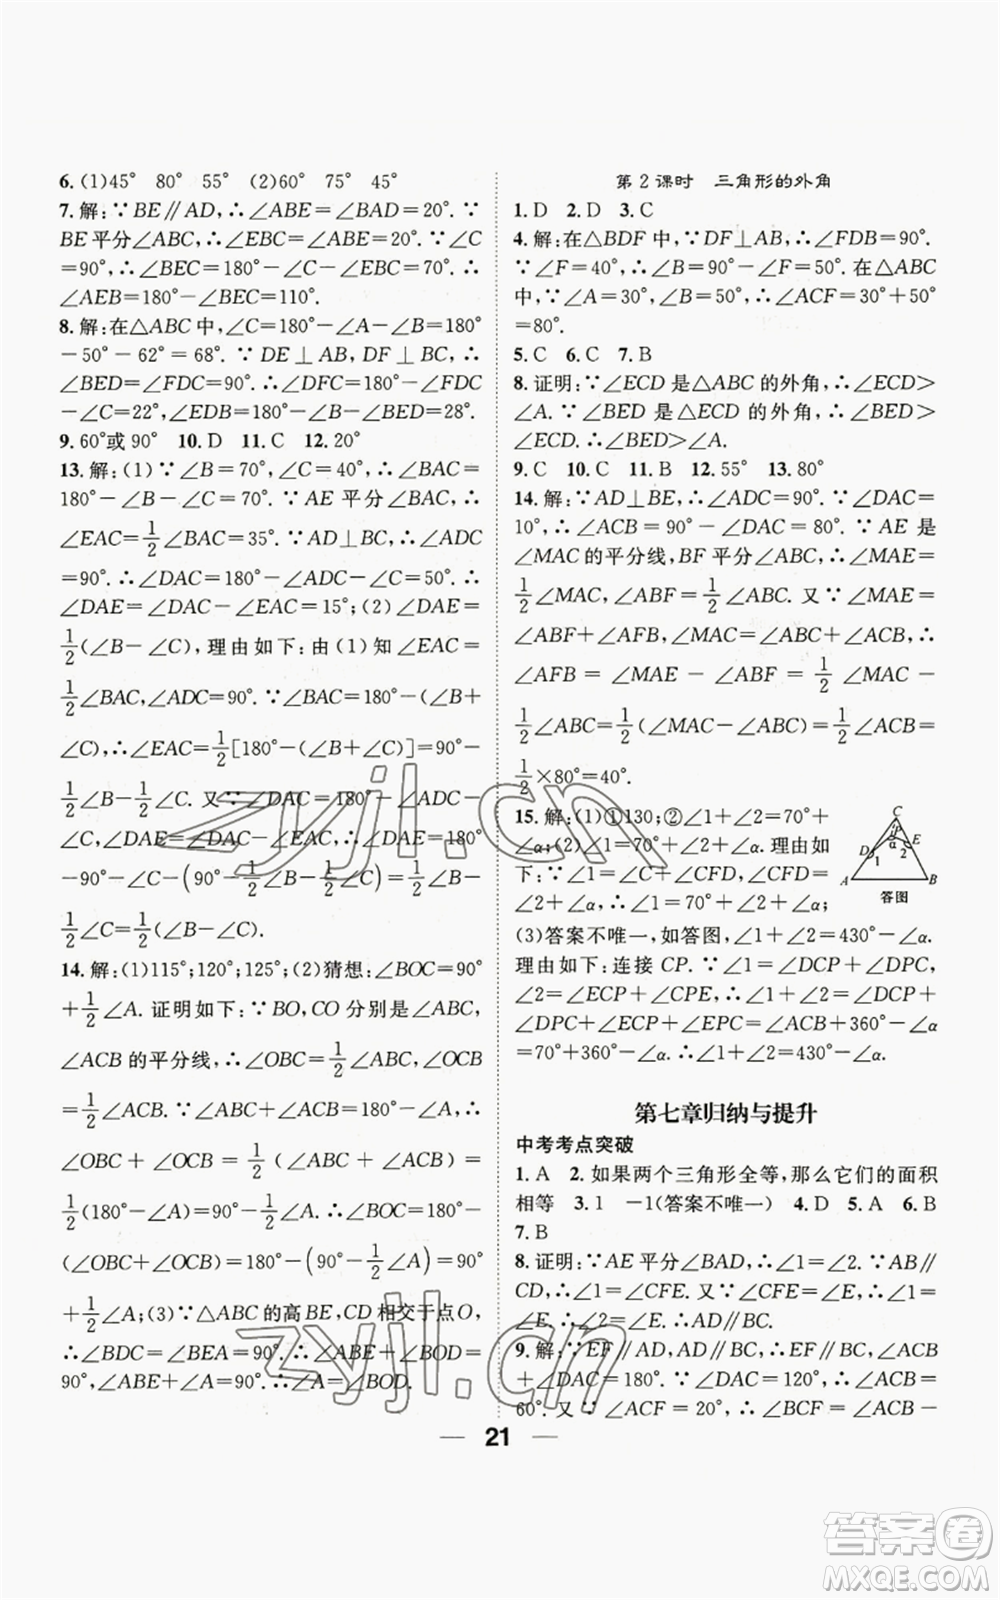 6. (1)45°  80°  55°  (2)60°  75°  45°
7. 解:∵BE∥AD,∴∠ABE=∠BAD=20°. ∵
BE平分∠ABC,∴∠EBC=∠ABE=20°. ∵∠C
=90°,∴∠BEC=180°-∠C-∠EBC=70°. ∴
∠AEB=180°-∠BEC=110°.
8. 解:在△ABC中,∠C=180°-∠A-∠B=180°
-50°-62°=68°. ∵DE⊥AB,DF⊥BC,∴
∠BED=∠FDC=90°. ∴∠DFC=180°-∠FDC
-∠C=22°,∠EDB=180°-∠B-∠BED=28°.
9. 60°或90°  10. D  11. C  12. 20°
13. 解:(1)∵∠B=70°,∠C=40°,∴∠BAC=
180°-∠B-∠C=70°. ∵AE平分∠BAC,∴
∠EAC=1/2∠BAC=35°. ∵AD⊥BC,∴∠ADC
=90°. ∴∠DAC=180°-∠ADC-∠C=50°. ∴
∠DAE=∠DAC-∠EAC=15°;(2)∠DAE=
1/2(∠B-∠C),理由如下:由(1)知∠EAC=
1/2∠BAC,∠ADC=90°. ∵∠BAC=180°-(∠B+
∠C),∴∠EAC=1/2[180°-(∠B+∠C)]=90°-
1/2∠B-1/2∠C. 又∵∠DAC=180°-∠ADC-
∠C,∠DAE=∠DAC-∠EAC,∴∠DAE=180°
-90°-∠C-(90°-1/2∠B-1/2∠C)=1/2∠B-
1/2∠C=1/2(∠B-∠C).
14. 解:(1)115°;120°;125°;(2)猜想:∠BOC=90°
+1/2∠A. 证明如下:∵BO,CO分别是∠ABC,
∠ACB的平分线,∴∠OBC=1/2∠ABC,∠OCB
=1/2∠ACB. ∵∠ABC+∠ACB=180°-∠A,∴
∠OBC+∠OCB=1/2(∠ABC+∠ACB)=
1/2(180°-∠A)=90°-1/2∠A. ∴∠BOC=180°-
(∠OBC+∠OCB)=180°-(90°-1/2∠A)=90°
+1/2∠A;(3)∵△ABC的高BE,CD相交于点O,
∴∠BDC=∠BEA=90°. ∴∠ABE+∠BOD=
90°,∠ABE+∠A=90°. ∴∠A=∠BOD.
第2课时  三角形的外角
1. D  2. D  3. C
4. 解:在△BDF中,∵DF⊥AB,∴∠FDB=90°.
∵∠F=40°,∴∠B=90°-∠F=50°. 在△ABC
中,∵∠A=30°,∠B=50°,∴∠ACF=30°+50°
=80°.
5. C  6. C  7. B
8. 证明:∵∠ECD是△ABC的外角,∴∠ECD>
∠A. ∵∠BED是△ECD的外角,∴∠BED>
∠ECD. ∴∠BED>∠A.
9. C  10. C  11. B  12. 55°  13. 80°
14. 解:∵AD⊥BE,∴∠ADC=90°. ∵∠DAC=
10°,∴∠ACB=90°-∠DAC=80°. ∵AE是
∠MAC的平分线,BF平分∠ABC,∴∠MAE=
1/2∠MAC,∠ABF=1/2∠ABC. 又∵∠MAE=
∠ABF+∠AFB,∠MAC=∠ABC+∠ACB,∴
∠AFB=∠MAE-∠ABF=1/2∠MAC-
1/2∠ABC=1/2(∠MAC-∠ABC)=1/2∠ACB=
1/2×80°=40°.
15. 解:(1)①130;②∠1+∠2=70°+
∠α;(2)∠1=70°+∠2+∠α. 理由如
下:∵∠1=∠C+∠CFD,∠CFD=
∠2+∠α,∴∠1=70°+∠2+∠α;
C
P
D
α
E
1
2
A
B
答图
(3)答案不唯一,如答图,∠1+∠2=430°-∠α.
理由如下:连接CP. ∵∠1=∠DCP+∠DPC,
∠2=∠ECP+∠CPE,∴∠1+∠2=∠DCP+
∠DPC+∠ECP+∠CPE=∠ACB+360°-∠α
=70°+360°-∠α. ∴∠1+∠2=430°-∠α.
第七章归纳与提升
中考考点突破
1. A  2. 如果两个三角形全等,那么它们的面积
相等  3. 1  -1(答案不唯一)  4. D  5. A  6. B
7. B
8. 证明:∵AE平分∠BAD,∴∠1=∠2. ∵AB∥
CD,∴∠1=∠CFE. 又∵∠CFE=∠E,∴∠1=
∠E. ∴∠2=∠E. ∴AD∥BC.
9. 解:∵EF∥AD,AD∥BC,∴EF∥BC. ∴∠ACB
+∠DAC=180°. ∵∠DAC=120°,∴∠ACB=
60°. 又∵∠ACF=20°,∴∠BCF=∠ACB-
— 21 —
zyjl.cn
zyjl.cn
答案卷
MXQE.COM